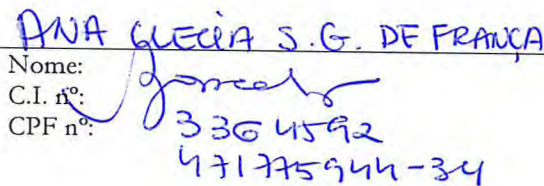 ANA GLECIA S. G. DE FRANÇA
Nome:
C.I. nº: 3364592
CPF nº: 471775944-34